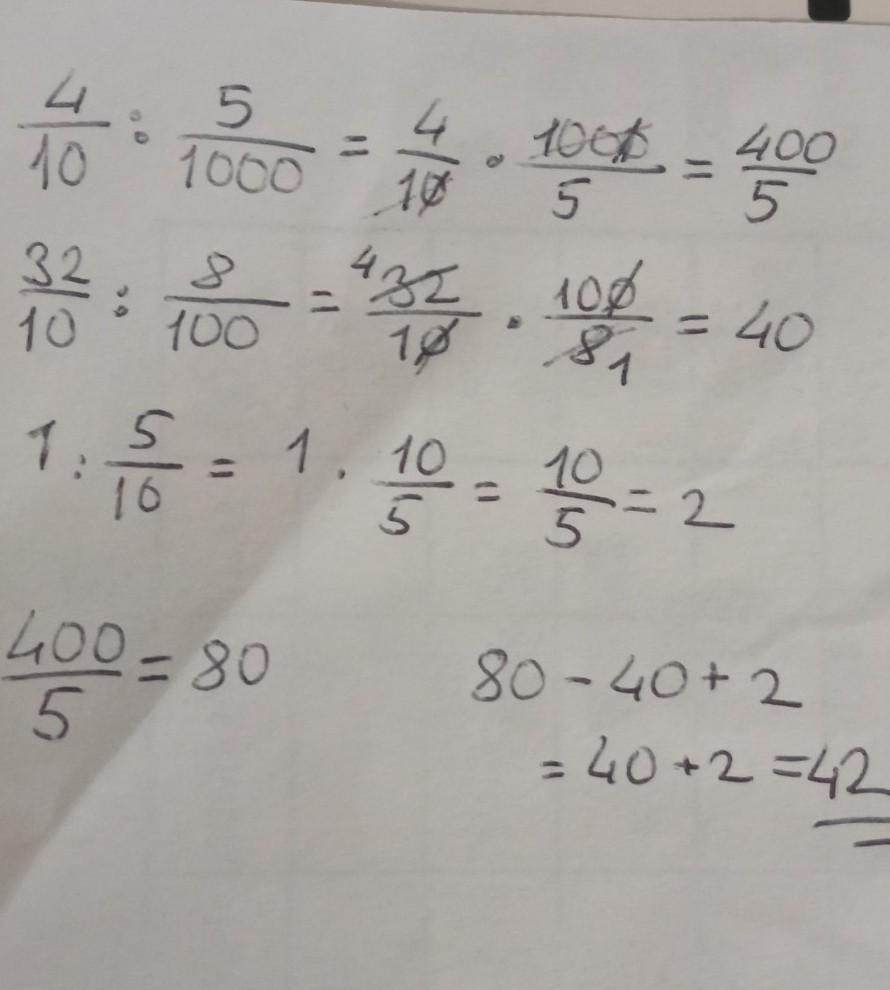 4/10 : 5/1000 = 4/10 · 1000/5 = 400/5
32/10 : 8/100 = 4 32/10 · 100/8 1 = 40
1 : 5/10 = 1 · 10/5 = 10/5 = 2
400/5 = 80
80 - 40 + 2
= 40 + 2 = 42